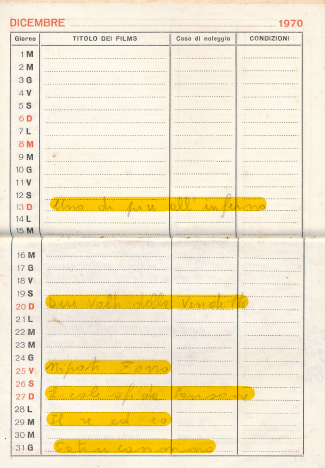 DICEMBRE 1970
Giorno TITOLO DEI FILMS Casa di noleggio CONDIZIONI
1 M
2 M
3 G
4 V
5 S
6 D
7 L
8 M
9 M
10 G
11 V
12 S
13 D Una di più all'inferno
14 L
15 M
16 M
17 G
18 V
19 S
20 D valli della vendetta
21 L
22 M
23 M
24 G
25 V Nipoti Zorro
26 S
27 D Ercole sfida Sansone
28 L
29 M Il re ed io
30 M
31 G